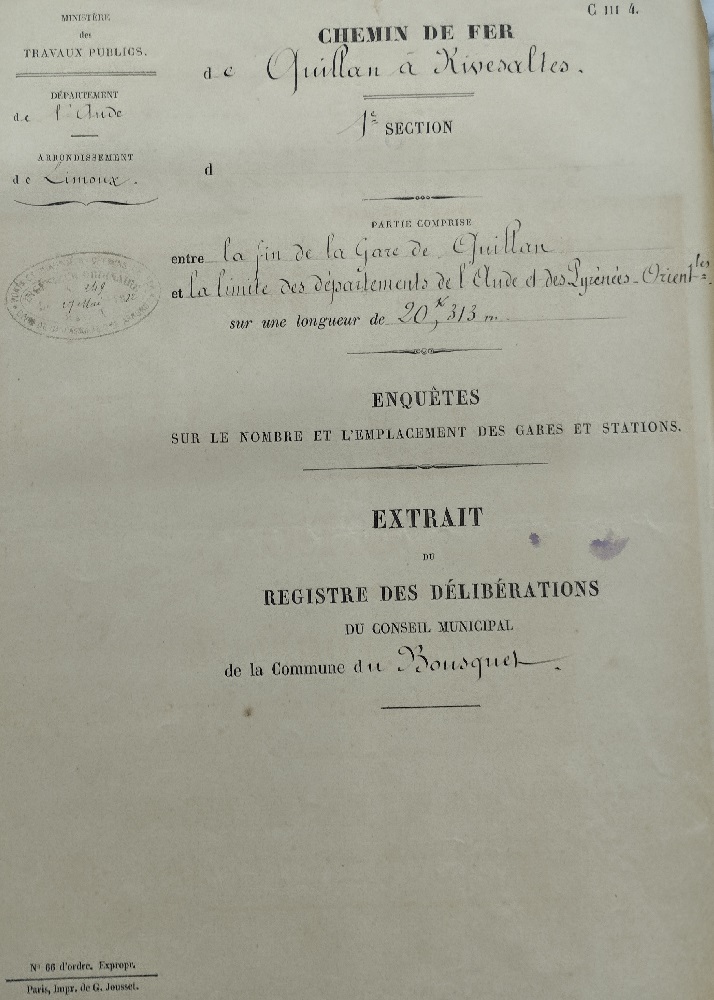 C III 4.
MINISTÈRE
des
TRAVAUX PUBLICS.
DÉPARTEMENT
de l'Aude
ARRONDISSEMENT
de Limoux.
CHEMIN DE FER
de Quillan à Rivesaltes.
1e SECTION
d
PARTIE COMPRISE
entre la fin de la Gare de Quillan
et la limite des départements de l'Aude et des Pyrénées-Orientles
sur une longueur de 20k,313m
249
27 Mai
ENQUÊTES
SUR LE NOMBRE ET L'EMPLACEMENT DES GARES ET STATIONS.
EXTRAIT
DU
REGISTRE DES DÉLIBÉRATIONS
DU CONSEIL MUNICIPAL
de la Commune du Bousquet.
No 66 d'ordre. Expropr.
Paris, Impr. de G. Jousset.